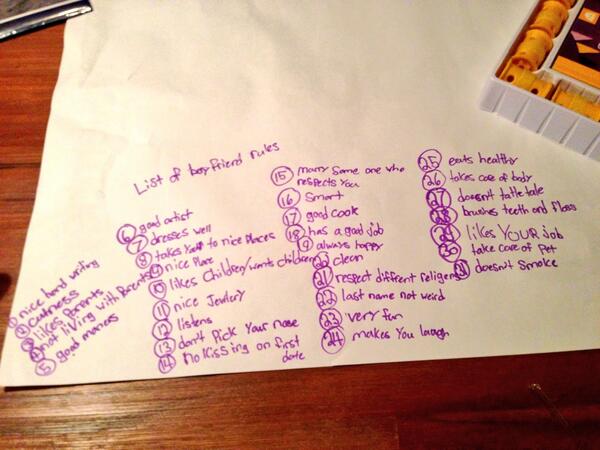 List of boyfriend rules
1 nice hand writing
2 cutness
3 likes parents
4 not living with parents
5 good maners
6 good artist
7 dresses well
8 takes you to nice places
9 nice place
10 likes children/wants children
11 nice Jewlery
12 listens
13 don't pick your nose
14 no kissing on first
date
15 marry some one who
respects you
16 smart
17 good cook
18 has a good job
19 always happy
20 clean
21 respect diffrent religens
22 last name not weird
23 very fun
24 makes you laugh
25 eats healthy
26 takes care of body
27 doesn't tattle tale
28 brushes teeth and floss
29 likes YOUR job
30 take care of pet
31 doesn't smoke